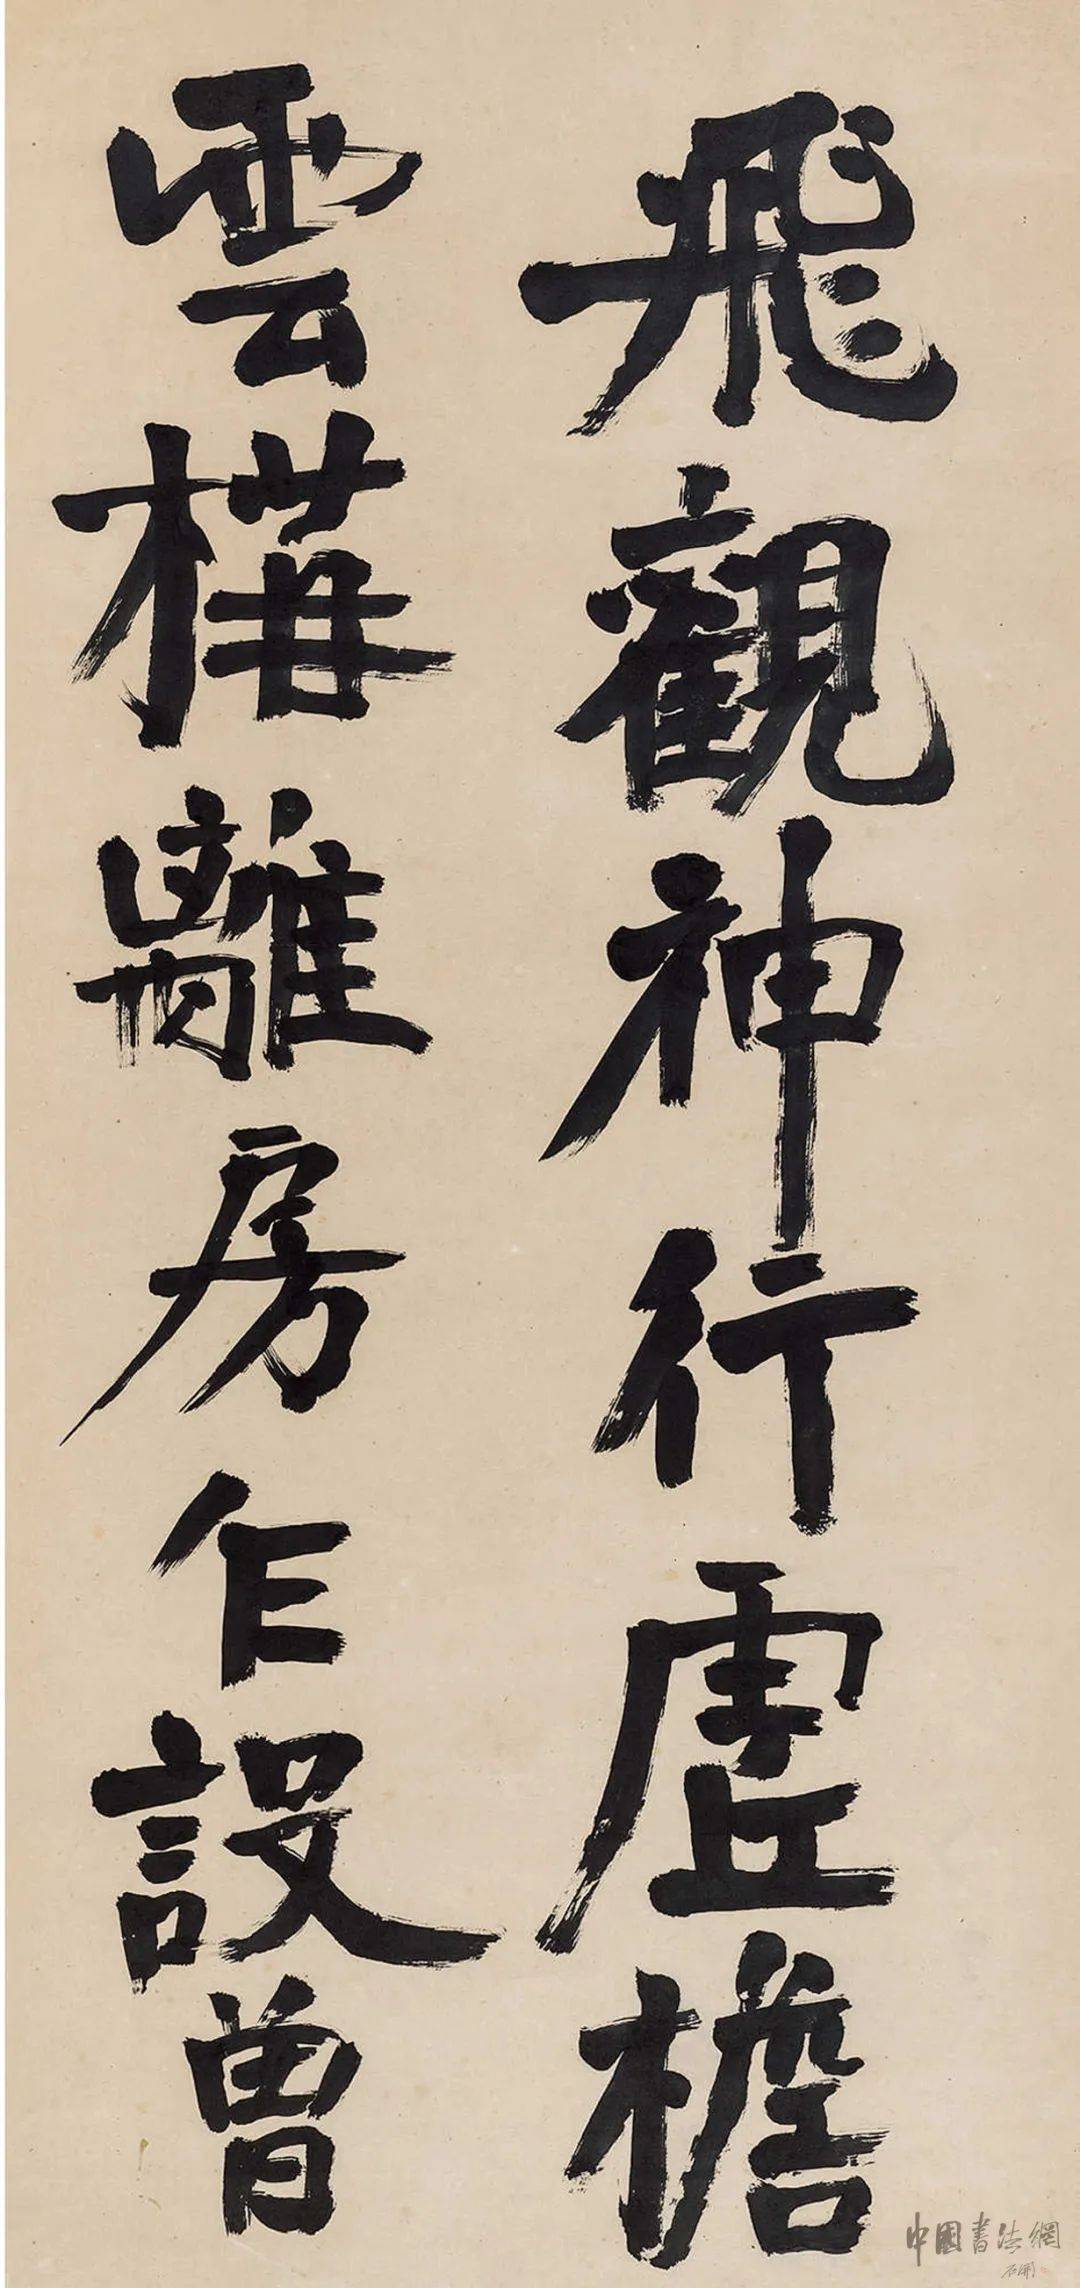 飛觀神行虛檐
雲構離房乍設曾
中國書法網